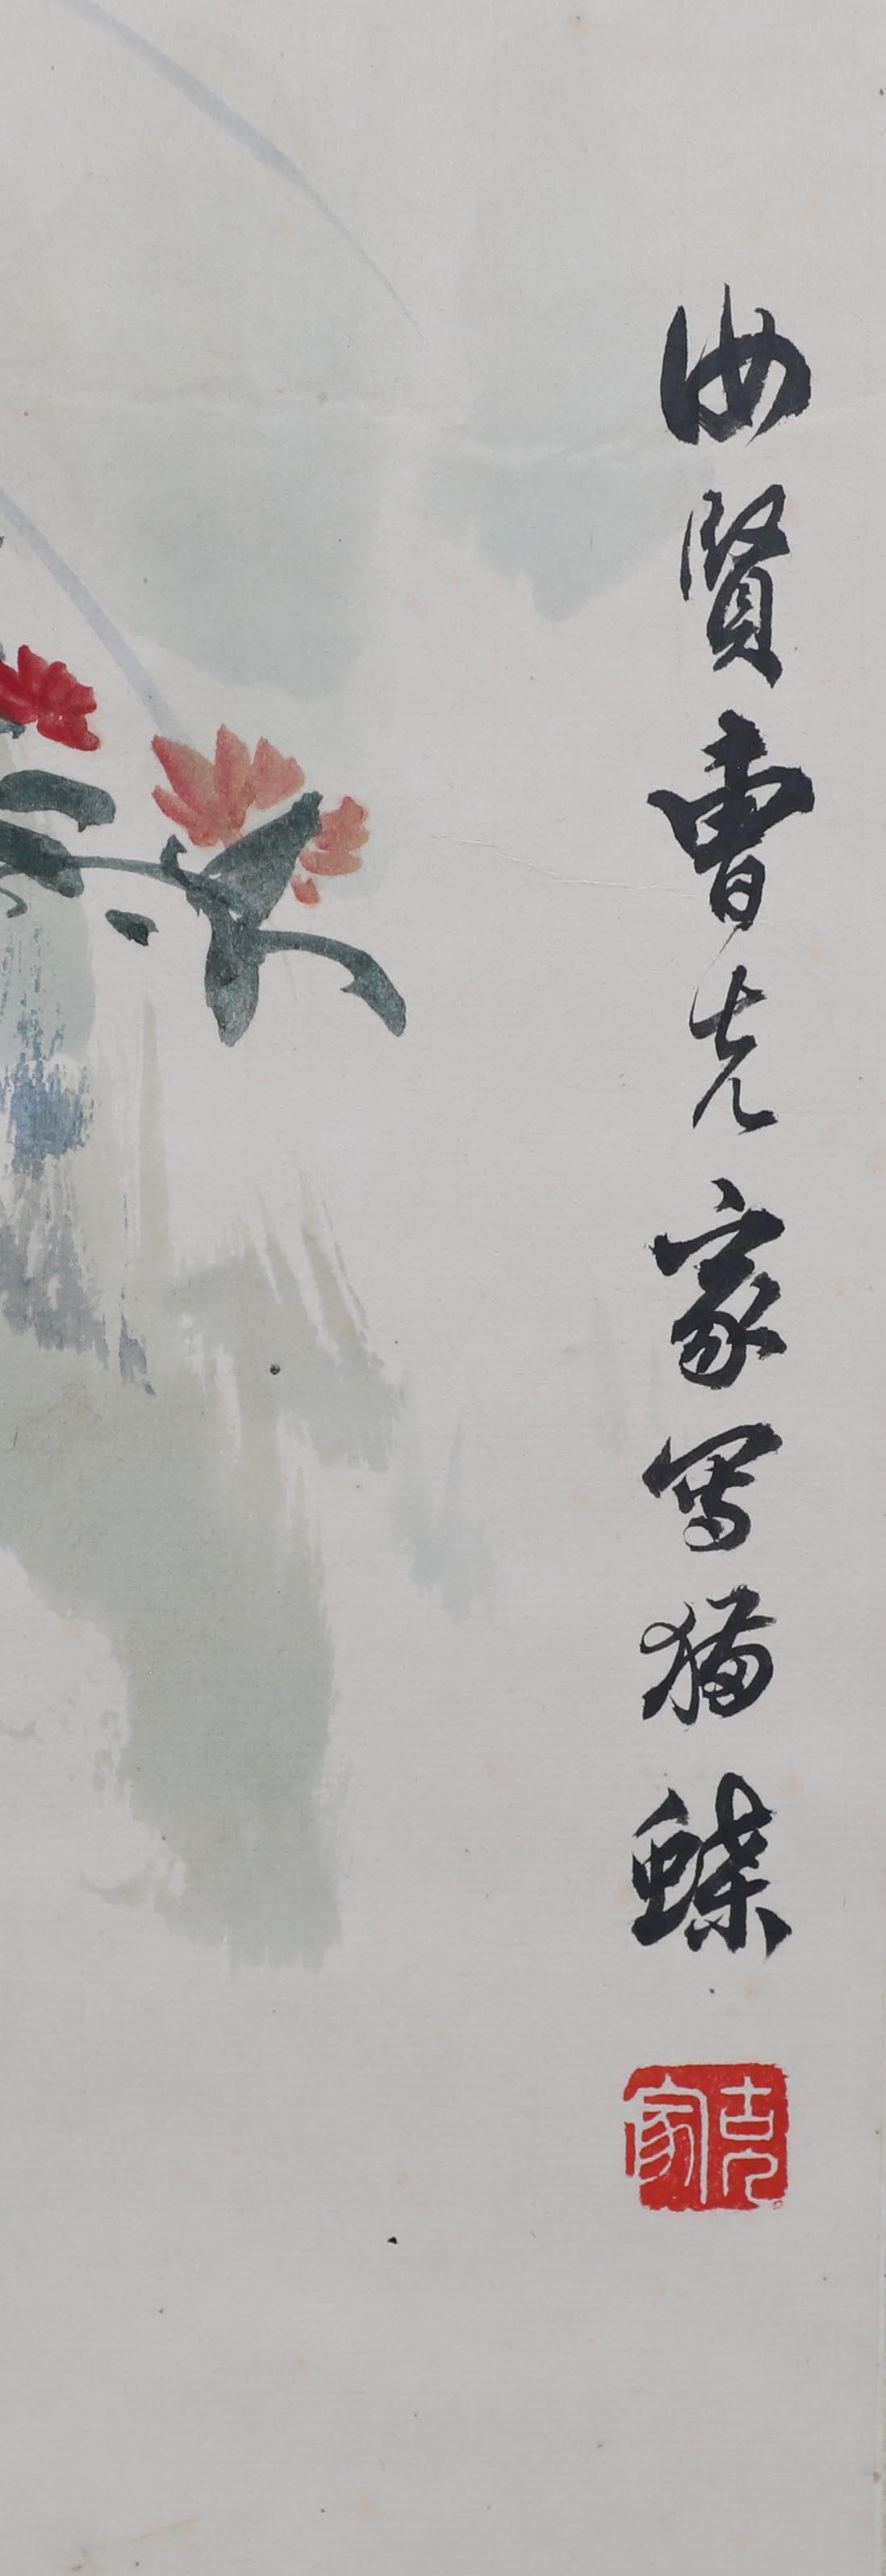 汝賢曹克家寫猫蝶
克家